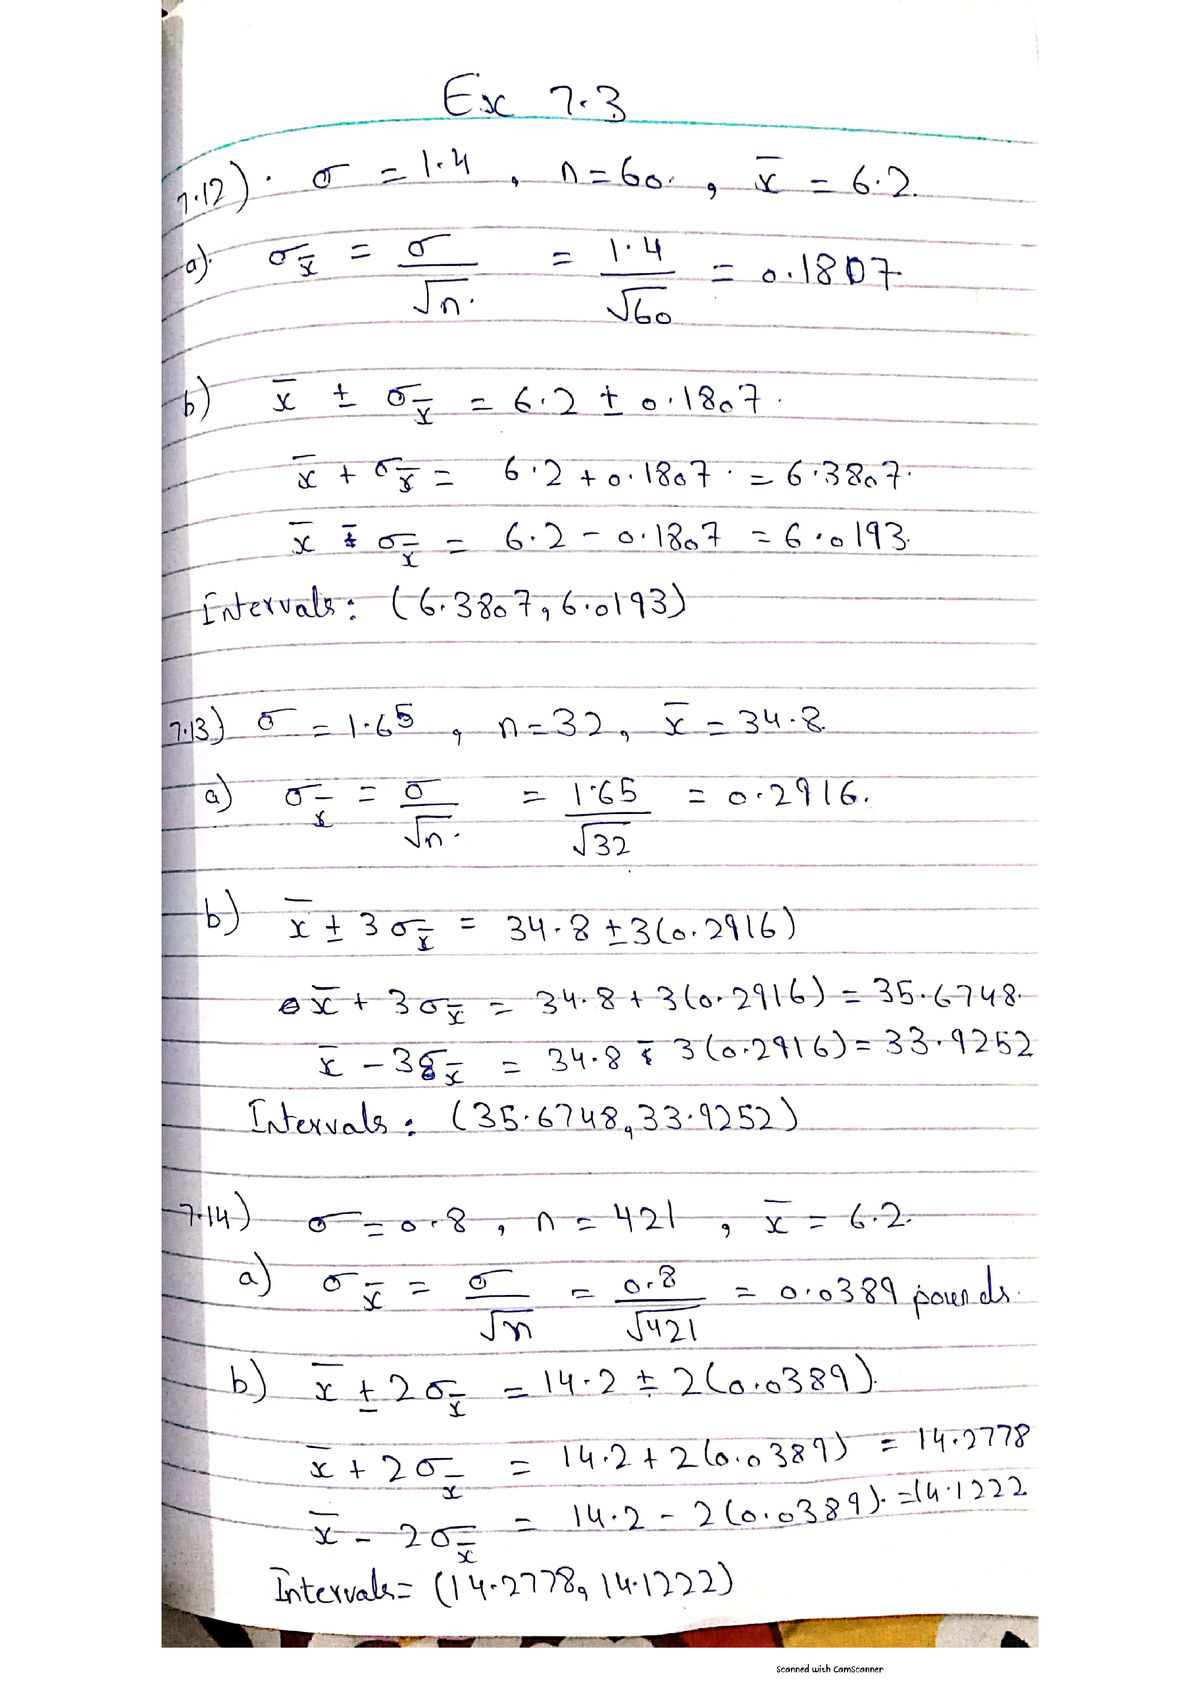 Ex 7.3
7.12) . σ = 1.4 , n = 60 , x̄ = 6.2.
a). σx̄ = σ/√n. = 1.4/√60 = 0.1807
b) x̄ ± σx̄ = 6.2 ± 0.1807.
x̄ + σx̄ = 6.2 + 0.1807 . = 6.3807.
x̄ - σx̄ = 6.2 - 0.1807 = 6.0193.
Intervals : (6.3807, 6.0193)
7.13) σ = 1.65 , n = 32, x̄ = 34.8.
a) σx̄ = σ/√n. = 1.65/√32 = 0.2916.
b) x̄ ± 3σx̄ = 34.8 ± 3(0.2916)
x̄ + 3σx̄ = 34.8 + 3(0.2916) = 35.6748.
x̄ - 3σx̄ = 34.8 - 3(0.2916) = 33.9252
Intervals : (35.6748, 33.9252)
7.14) σ = 0.8 , n = 421 , x̄ = 6.2.
a) σx̄ = σ/√n = 0.8/√421 = 0.0389 pounds.
b) x̄ ± 2σx̄ = 14.2 ± 2(0.0389).
x̄ + 2σx̄ = 14.2 + 2(0.0389) = 14.2778
x̄ - 2σx̄ = 14.2 - 2(0.0389). = 14.1222
Intervals = (14.2778, 14.1222)
Scanned with CamScanner